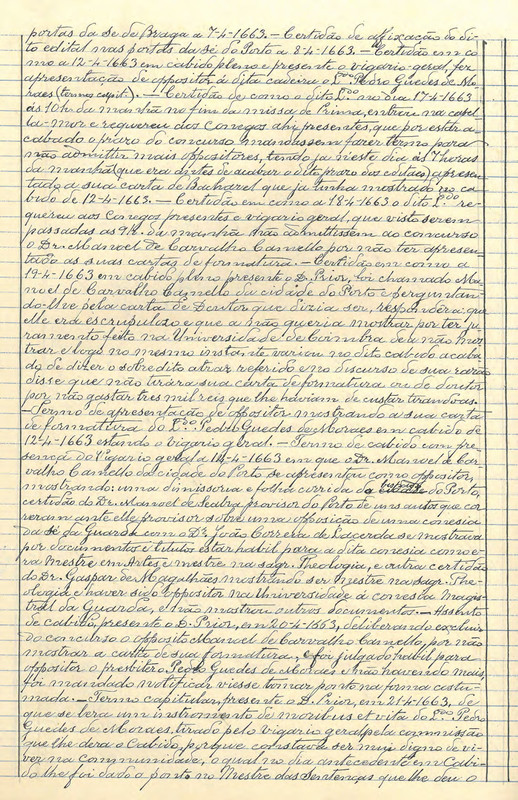 portas da se de Braga a 7-4-1663. — Certidão de affixação do di-
to edital nas portas da sé do Porto a 8-4-1663. — Certidão em co-
mo a 12-4-1663 em cabido pleno e presente o vigario-geral, fez
apresentação de oppositor á dita cadeira o L.do Pedro Guedes de Mo-
raes (termos capit.). — Certidão de como o dito L.do no dia 17-4-1663
ás 10 hr da manhã no fim da missa de Prima, entrou na capel-
la-mor e requereu aos conegos ahi presentes, que por estar a-
cabado o prazo do concurso mandassem fazer termo para
não admittir mais oppositores, tendo já neste dia ás 7 horas
da manhã (que era antes de acabar o dito prazo dos editaes) apresen-
tado a sua carta de Bacharel que já tinha mostrado no ca-
bido de 12-4-1663. — Certidão em como a 18-4-1663 o dito L.do re-
quereu aos Conegos presentes e vigario geral, que visto serem
passadas as 9 h. da manhã não admittissem ao concurso
o Dr. Manoel de Carvalho Camello por não ter apresen-
tado as suas cartas de formatura. — Certidão em como a
19-4-1663 em cabido pleno presente o D. Prior, foi chamado Ma-
noel de Carvalho Camello da cidade do Porto e perguntan-
do-lhe pela carta de Doutor que dizia ser, respondera: que
elle era escrupuloso e que a não queria mostrar por ter ju-
ramento feito na Universidade de Coimbra de a não mos-
trar e logo no mesmo instante variou no dito cabido acaba-
do de dizer o sobredito atraz referido e no discurso de sua razão
disse que não tirára sua carta de formatura ou de doutor
por não gastar tres mil reis que lhe haviam de custar tirandoas.
— Termo de apresentação de oppositor mostrando a sua carta
de formatura do L.do Pedro Guedes de Moraes em cabido de
12-4-1663 estando o vigario geral. — Termo de cabido com pre-
sença do Vigario geral a 14-4-1663 em que o Dr. Manoel de Car-
valho Camello da cidade do Porto se apresentou como oppositor,
mostrando: uma dimissoria e folha corrida do bispado do Porto,
certidão do Dr. Manoel de Seabra provisor do Porto de uns autos que cor-
reram ante elle provisor sobre uma opposição de uma conesia
da sé da Guarda com o Dr. João Correa de Lacerda se mostrava
por documentos e titulos estar habil para a dita conesia como e-
ra Mestre em Artes e mestre na sagr. Theologia, e outra certidão
do Dr. Gaspar de Magalhães mostrando ser Mestre na sagr. The-
ologia e haver sido oppositor na Universidade á conesia Magis-
tral da Guarda, e não mostrou outros documentos. — Assento
de cabido, presente o D. Prior, em 20-4-1663, deliberando excluir
do concurso o opposito Manoel de Carvalho Camello, por não
mostrar a carta de sua formatura, e foi julgado habil para
oppositor o presbitero Pedro Guedes de Moraes e não havendo mais,
foi mandado notificar viesse tomar ponto na forma costu-
mada. — Termo capitular, presente o D. Prior, em 21-4-1663, de
que se lera um instromento de moribus et vita do L.do Pedro
Guedes de Moraes, tirado pelo vigario geral pela commissão
que lhe dera o Cabido, porque constava ser mui digno de vi-
ver na Communidade, o qual no dia antecedente em Cabi-
do lhe foi dado o ponto no Mestre das Sentenças que lhe deu o